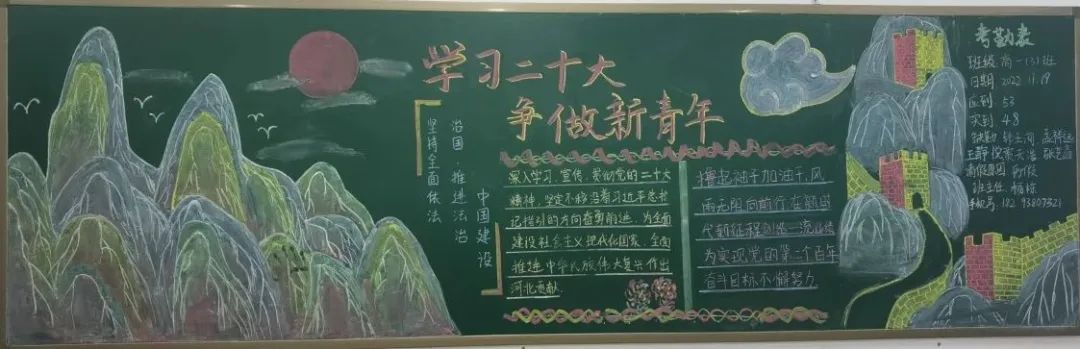 学习二十大
争做新青年
坚持全面依法
治国·推进法治
中国建设
深入学习、宣传、贯彻党的二十大
精神,坚定不移沿着习近平总书
记指引的方向奋勇前进、为全面
建设社会主义现代化国家、全面
推进中华民族伟大复兴作出
河北贡献
撸起袖子加油干,风
雨无阻向前行在新时
代新征程创造一流业绩
为实现党的第二个百年
奋斗目标不懈努力
考勤表
班级:高一131班
日期:2022 11.19
应到:53
实到:48
缺勤
王静
班主任
手机号:182